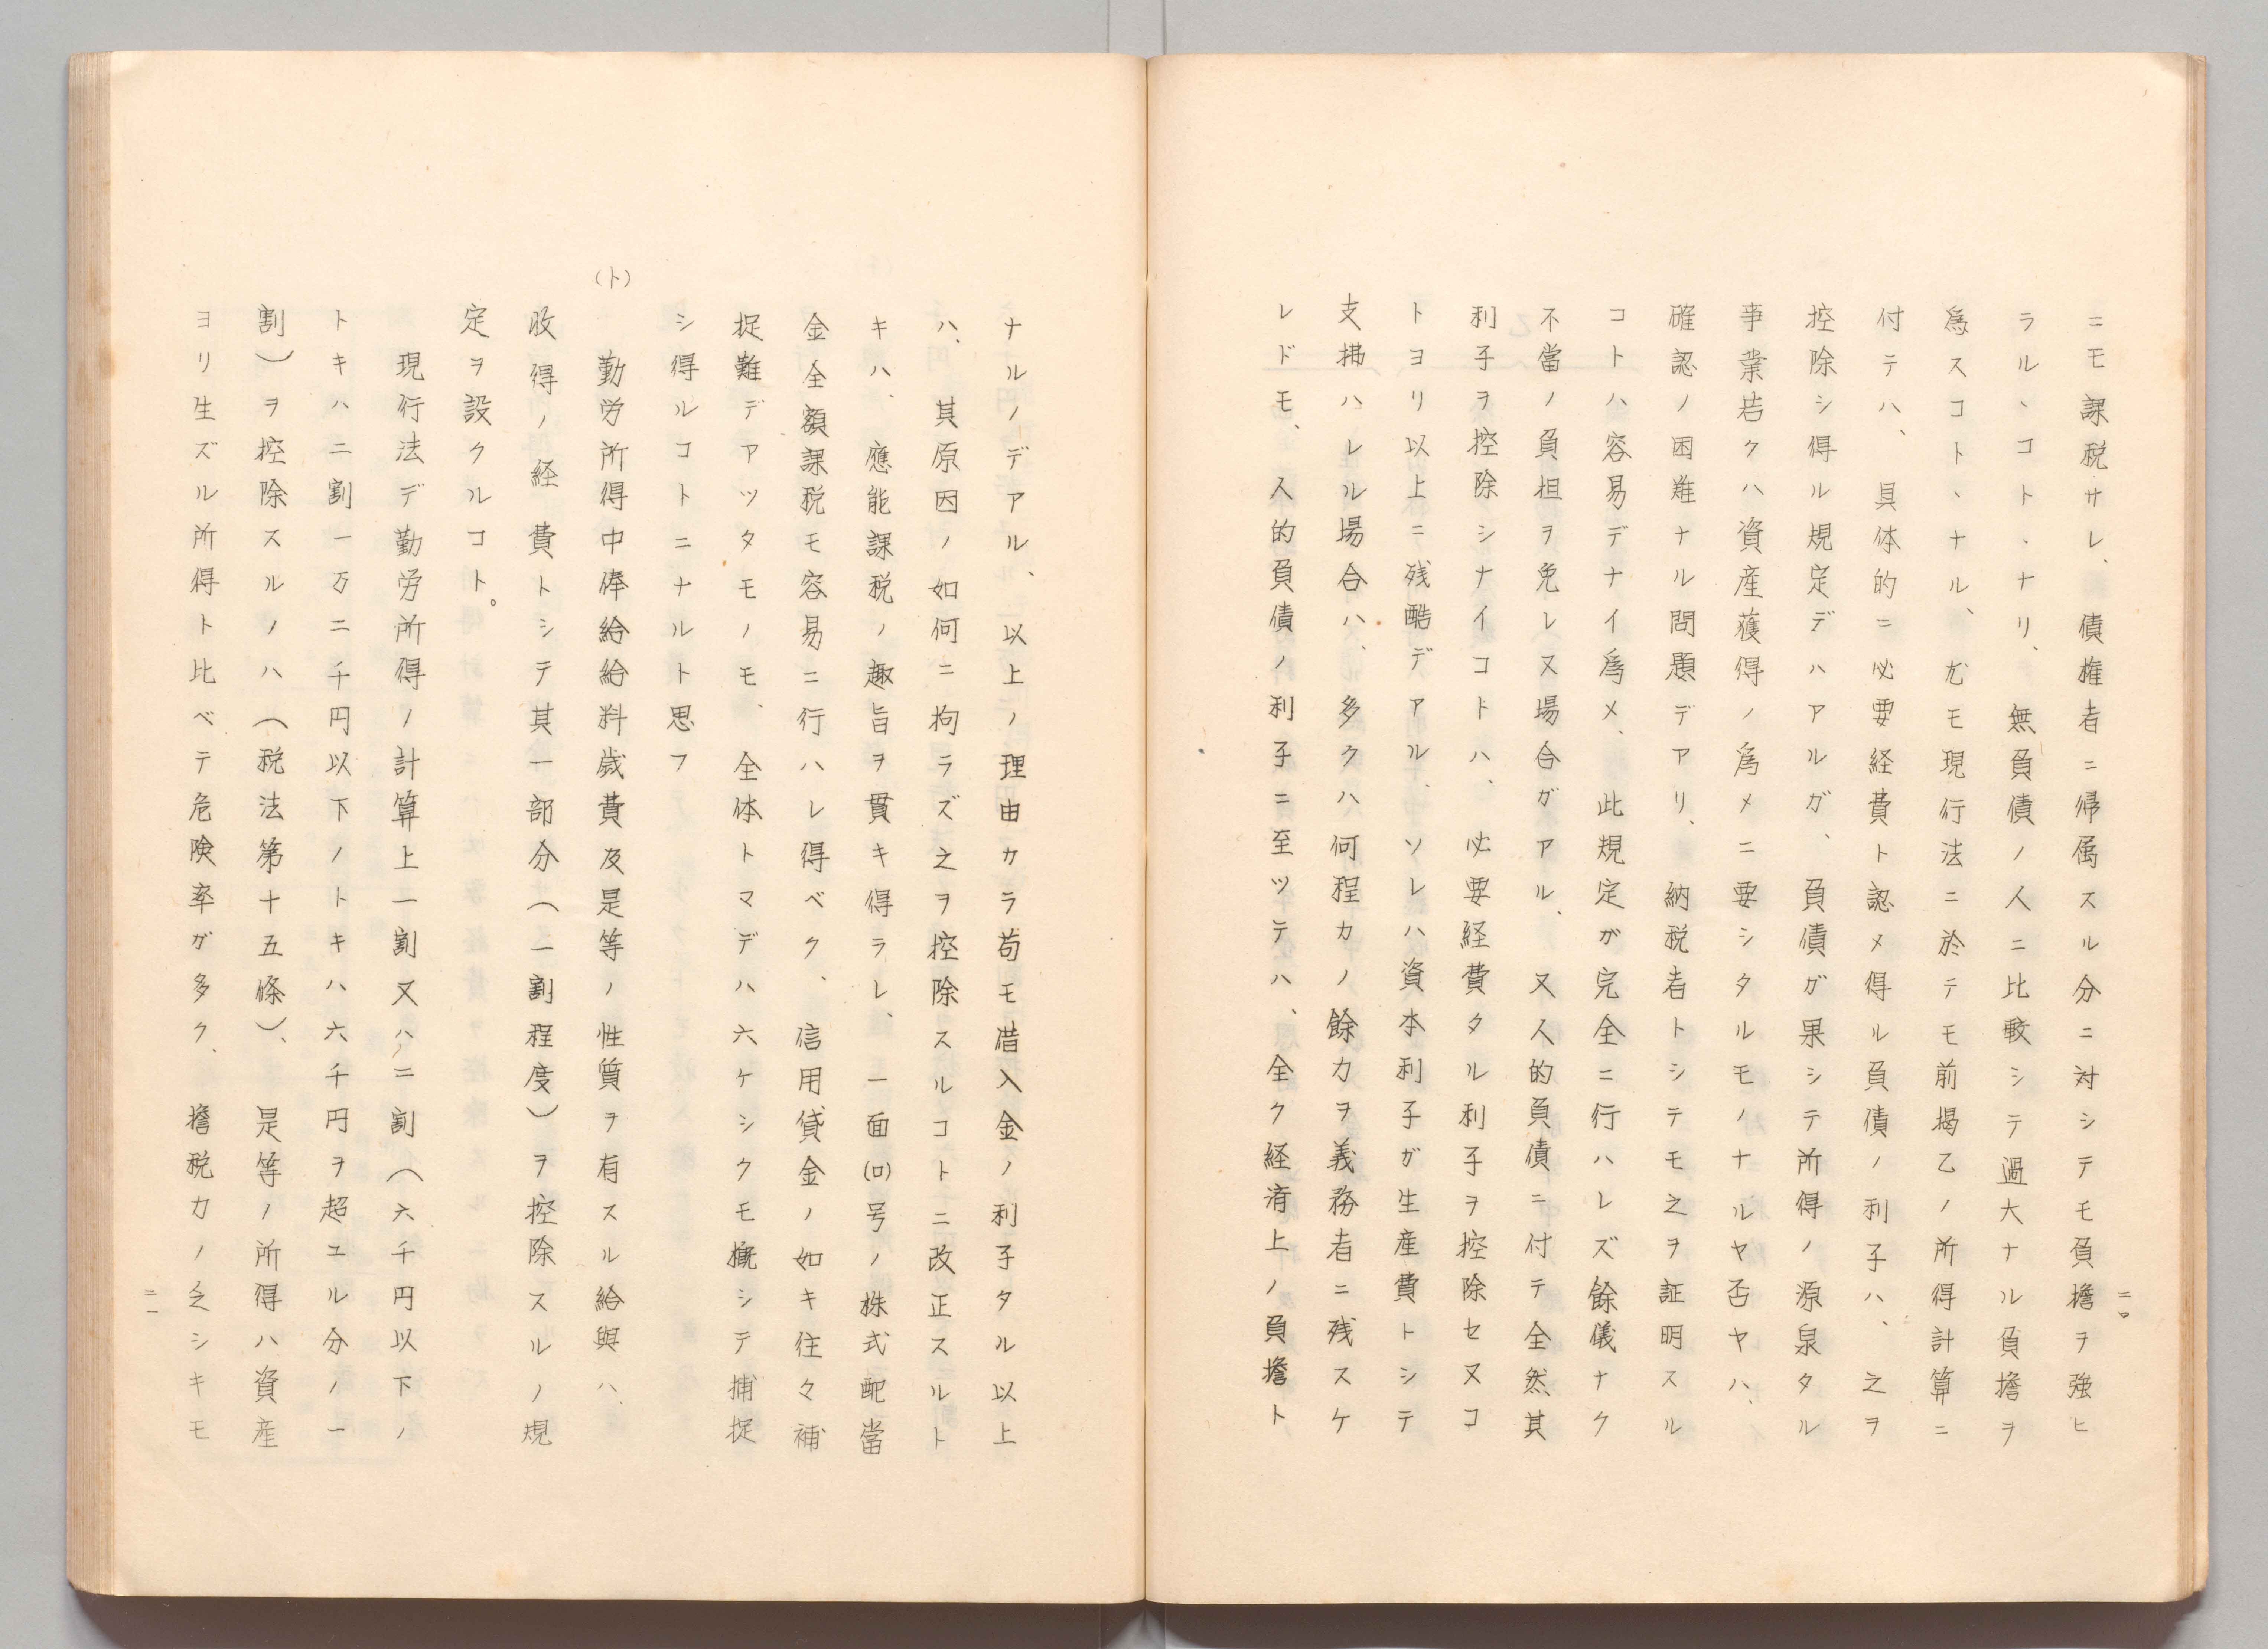 ニモ課税サレ、債権者ニ帰属スル分ニ対シテモ負擔ヲ強ヒ
ラル、コト、ナリ、無負債ノ人ニ比較シテ過大ナル負擔ヲ
為スコト、ナル、尤モ現行法ニ於テモ前掲乙ノ所得計算ニ
付テハ、具体的ニ必要経費ト認メ得ル負債ノ利子ハ、之ヲ
控除シ得ル規定デハアルガ、負債ガ果シテ所得ノ源泉タル
事業若クハ資産獲得ノ為メニ要シタルモノナルヤ否ヤハ、
確認ノ困難ナル問題デアリ、納税者トシテモ之ヲ証明スル
コトハ容易デナイ為メ、此規定が完全ニ行ハレズ餘儀ナク
不當ノ負担ヲ免レヌ場合ガアル、又人的負債ニ付テ全然其
利子ヲ控除シナイコトハ、必要経費タル利子ヲ控除セヌコ
トヨリ以上ニ残酷デアル、ソレハ資本利子ガ生産費トシテ
支拂ハレル場合ハ、多クハ何程カノ餘力ヲ義務者ニ残スケ
レドモ、人的負債ノ利子ニ至ツテハ、全ク経済上ノ負擔ト
二〇
ナルノデアル、以上ノ理由カラ苟モ借入金ノ利子タル以上
ハ、其原因ノ如何ニ拘ラズ之ヲ控除スルコトニ改正スルト
キハ、應能課税ノ趣旨ヲ貫キ得ラレ、一面(ロ)号ノ株式配當
金全額課税モ容易ニ行ハレ得ベク、信用貸金ノ如キ往々補
捉難デアツタモノモ、全体トマデハ六ケシクモ概シテ捕捉
シ得ルコトニナルト思フ
(ト)
勤労所得中俸給給料歳費及是等ノ性質ヲ有スル給與ハ、
收得ノ経費トシテ其一部分(一割程度)ヲ控除スルノ規
定ヲ設クルコト。
現行法デ勤労所得ノ計算上一割又ハ二割(六千円以下ノ
トキハ二割一万二千円以下ノトキハ六千円ヲ超ユル分ノ一
割)ヲ控除スルノハ(税法第十五條)、是等ノ所得ハ資産
ヨリ生ズル所得ト比ベテ危険率ガ多ク、擔税力ノ乏シキモ
二一